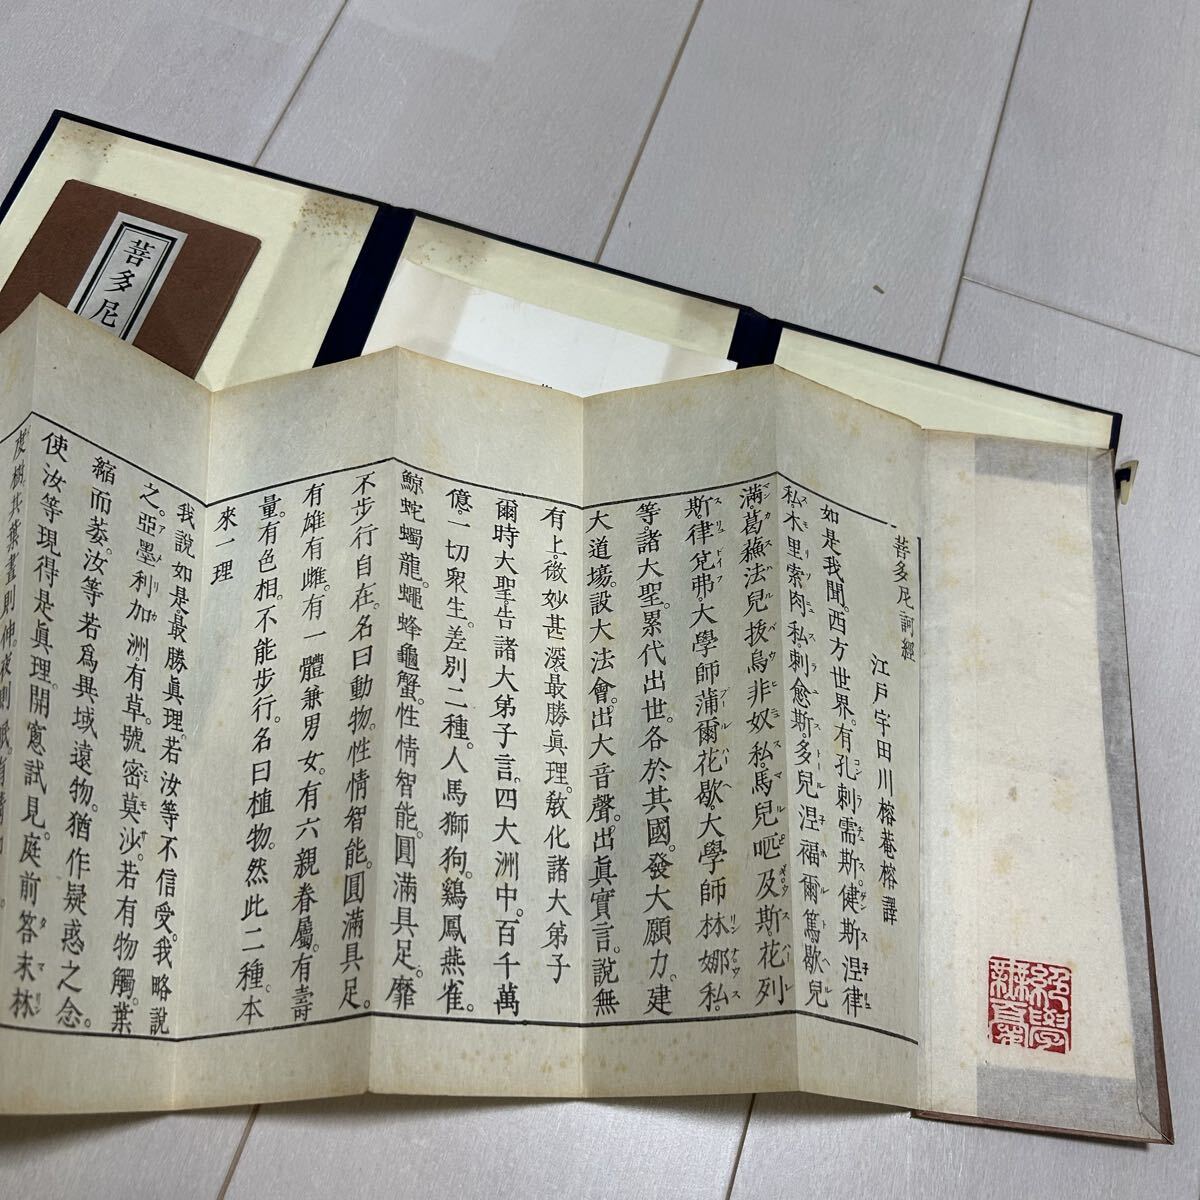 菩多尼訶經
江戸宇田川榕菴榕譯
如是我聞。西方世界。有孔刺需斯。健斯涅律
私。木里索肉私。刺愈斯。多兒涅福爾篤歇兒
滿。葛蘓法兒抜烏非奴私。馬兒吧及斯花列
斯。律兌弗。大學師蒲爾花歇大學師林娜私。
等。諸大聖。累代出世。各於其國。發大願力。建
大道場。設大法會。出大音聲。出眞實言。說無
有上。微妙甚深。最勝眞理。敎化諸大弟子
爾時大聖。告諸大弟子言。四大洲中。百千萬
億一切衆生。差別二種。人馬獅狗。鷄鳳燕雀。
鯨蛇蠋龍。蠅蜂龜蟹。性情智能。圓滿具足。靡
不步行自在。名曰動物。性情智能。圓滿具足。
有雄有雌。有一體兼男女。有六親眷屬。有壽
量。有色相。不能步行。名曰植物。然此二種。本
來一理
我說如是。最勝眞理。若汝等不信受。我略說
之。亞墨利加洲。有草。號密莫沙。若有物觸。葉
縮而萎。汝等若爲異域遠物。猶作疑惑之念。
使汝等現得是眞理。開窻試見。庭前答末林
度樹。其葉晝則伸。夜則
菩多尼